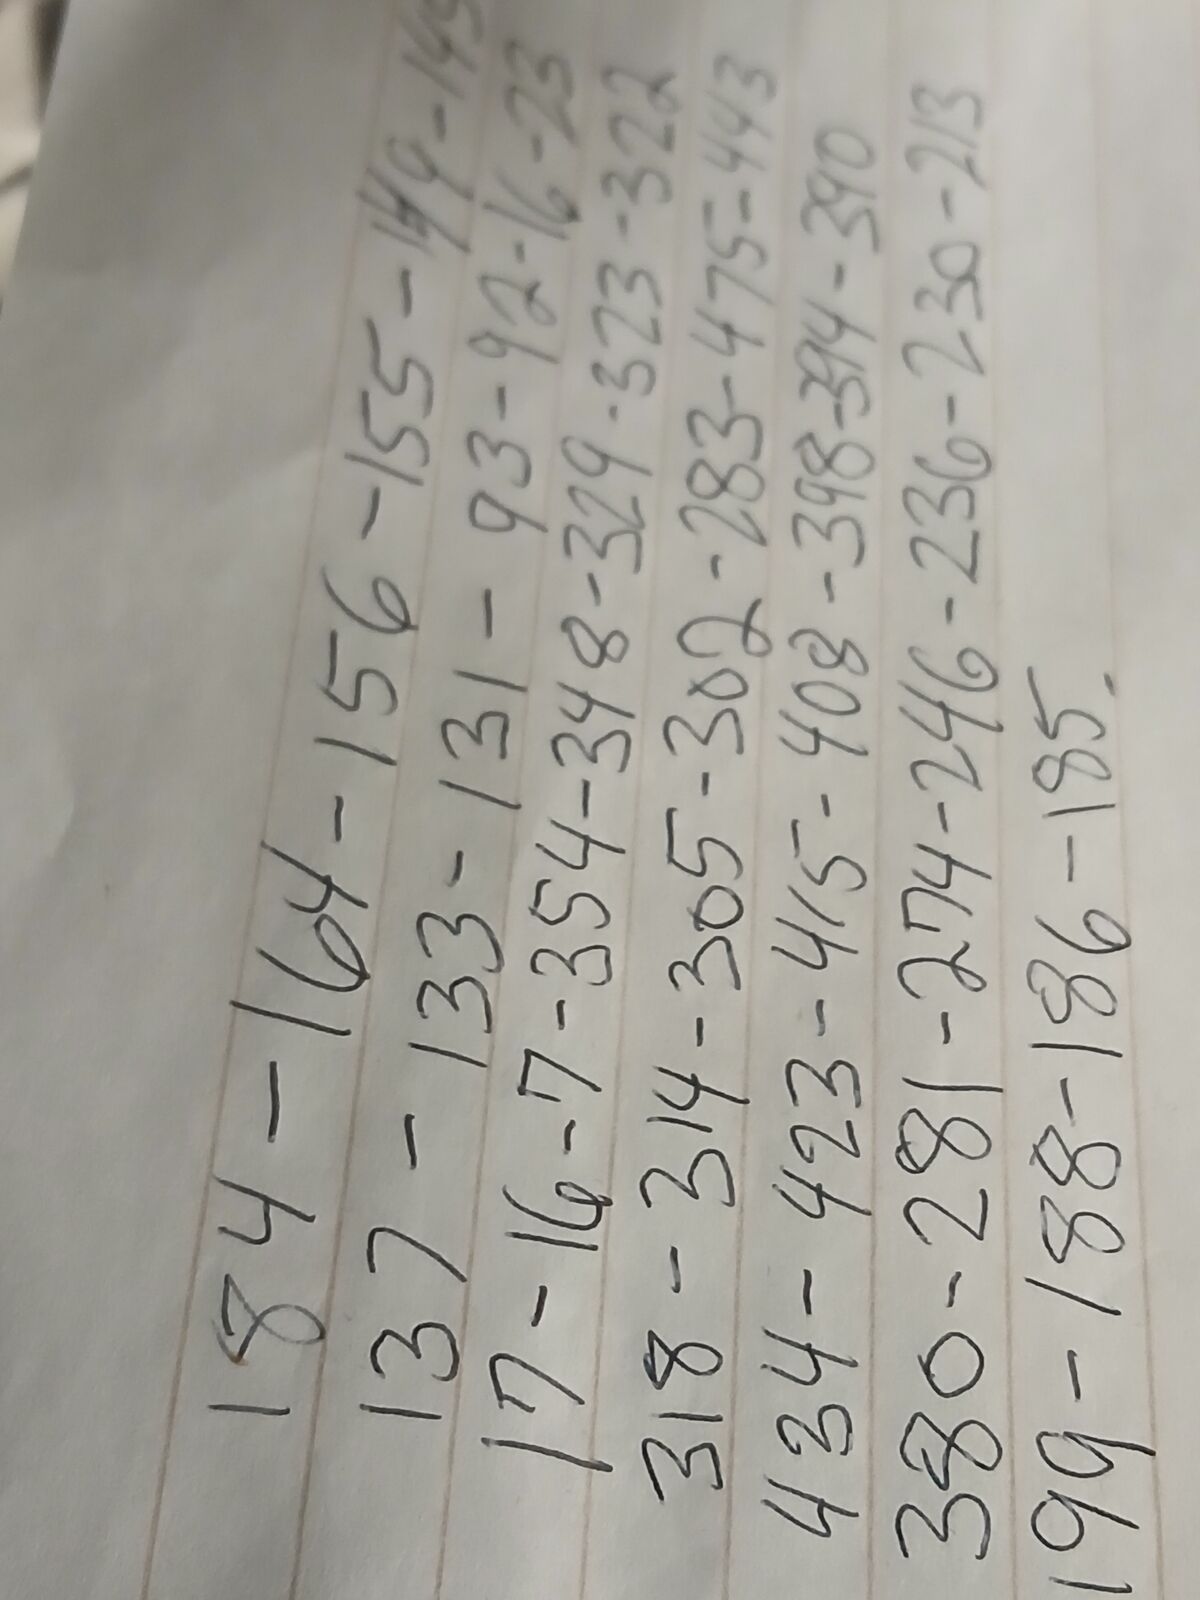 184-164-156-155-149-145
137-133-131-93-92-16-23
17-16-7-354-348-329-323-322
318-314-305-302-283-475-443
434-423-415-408-398-394-390
380-281-274-246-236-230-213
199-188-186-185.